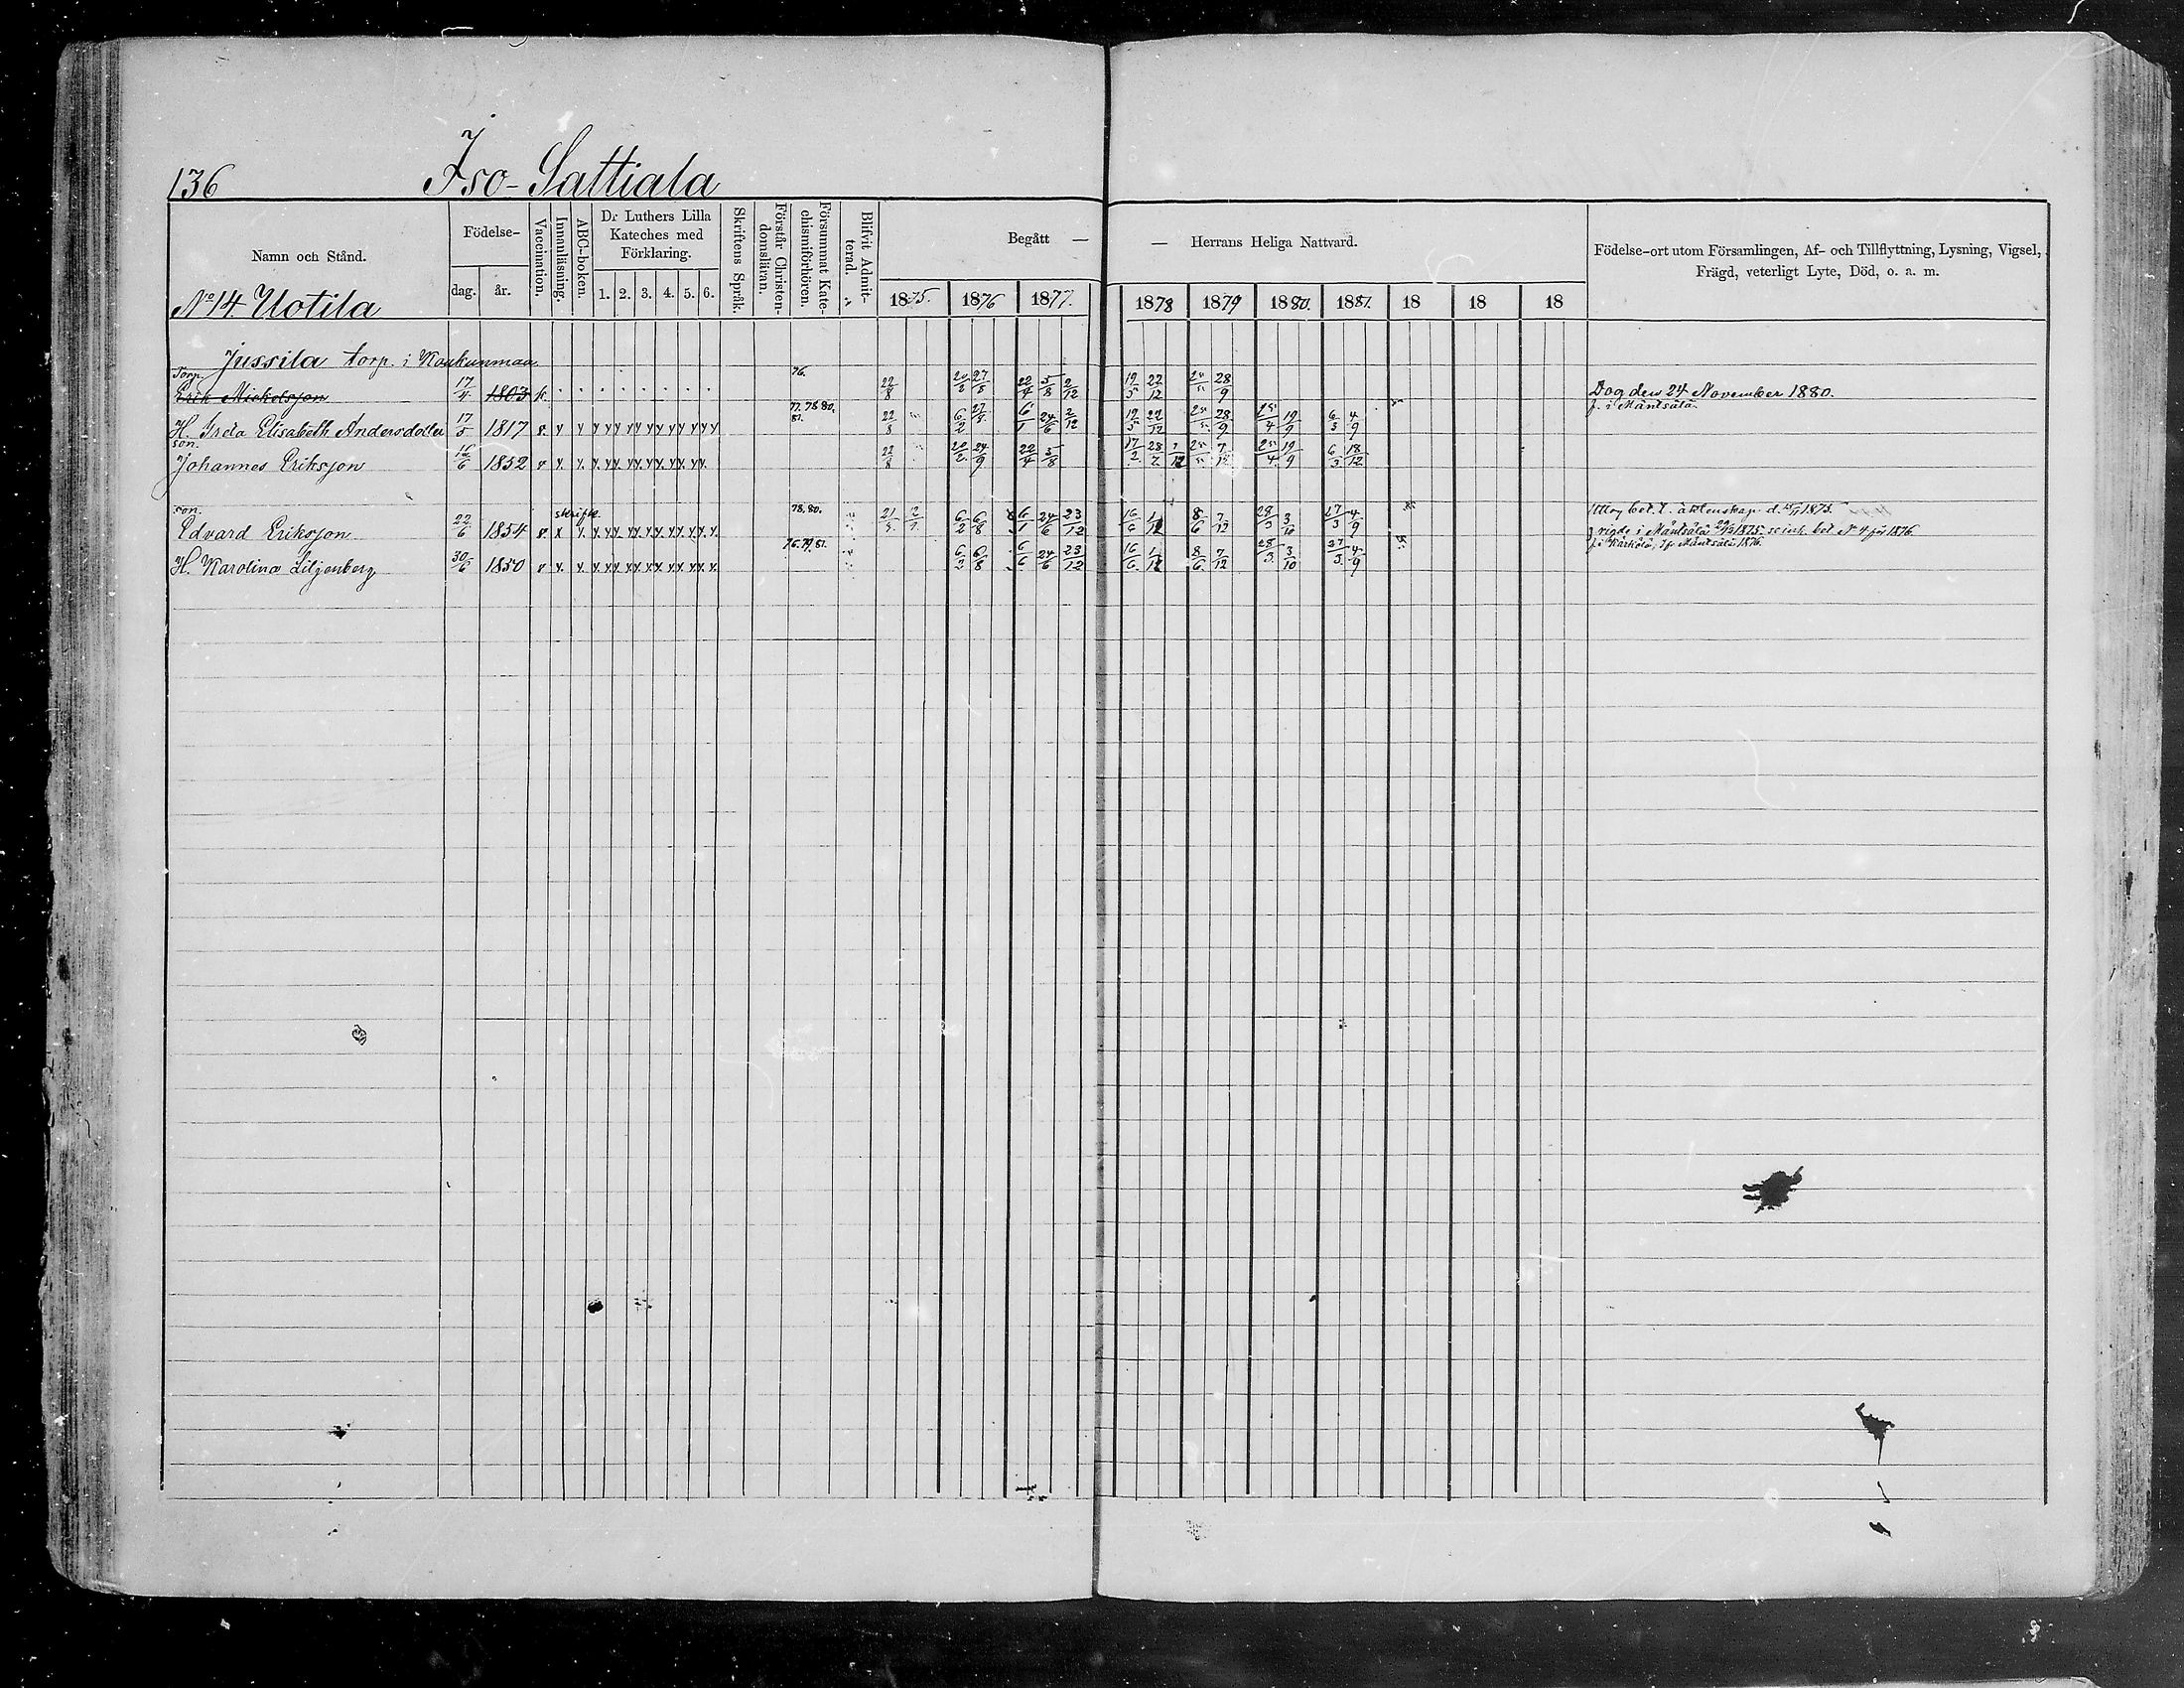 136 Iso-Sattiala
Namn och Stånd.
Födelse-
dag. år.
Vaccination.
Innanläsning.
ABC-boken.
Dr Luthers Lilla
Kateches med
Förklaring.
1. 2. 3. 4. 5. 6.
Skriftens Språk.
Förstår Christen-
domsläran.
Försummat Kate-
chismiförhören.
Blifvit Admit-
terad.
Begått — — Herrans Heliga Nattvard.
1875. 1876 1877. 1878 1879 1880. 1881. 18 18 18
Födelse-ort utom Församlingen, Af- och Tillflyttning, Lysning, Vigsel,
Frägd, veterligt Lyte, Död, o. a. m.
No 14. Uotila
Jussila torp. i Kaukunmaa
Torp. 76.
Erik Mickelsson 17/4 1803 22/8 22/4 5/8 2/12 19/5 22/12 28/9 Dog den 24 November 1880.
77. 78. 80. f. i Mäntsälä
81.
H. Greta Elisabeth Andersdotter 17/5 1817 v. 22/8 6/2 27/8 6/1 24/6 2/12 19/5 22/12 28/9 25/4 19/9 6/3 4/9
son.
Johannes Eriksson 16/6 1852 v 22/8 20/2 24/9 22/4 5/8 17/2 28/7 7/12 25/4 19/9 6/3 18/12
son. skrifk. 78, 80.
Edvard Eriksson 22/6 1854 v. 6/2 6/8 6/1 24/6 23/12 16/6 1/12 8/6 7/12 28/3 3/10 27/3 4/9
Uttog bet. t. äktenskap d. 15/11 1875.
vigde i Mäntsälä 29/12 1875. se ink. bet. No 4 för 1876.
76. 79. 81. f. i Kärkölä, Ifr. Mäntsälä 1876.
H. Karolina Liljenberg 30/6 1850 v 6/2 6/8 6/6 24/6 23/12 16/6 1/12 8/6 7/12 28/3 3/10 27/3 4/9